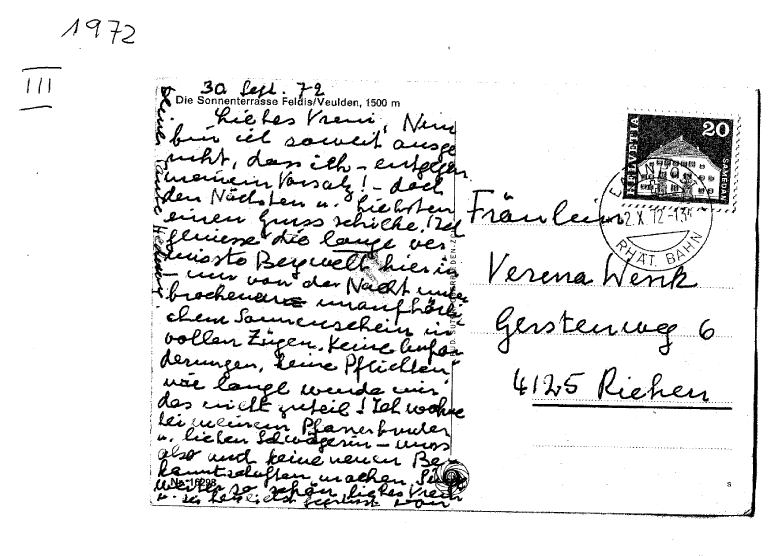 1972
III
30. Sept. 72
Die Sonnenterrasse Feldis/Veulden, 1500 m
Liebes Vreni, Nun
bin ich soweit ausge
ruht, dass ich – entgegen
meinem Vorsatz! – doch
den Nächsten u. Liebsten
einen Gruss schicke. Ich
geniesse die lange ver
misste Bergwelt hier in
– nur von der Nacht unter
brochenem – unaufhörli
chem Sonnenschein in
vollen Zügen. Keine Anfor
derungen, keine Pflichten
wie lange wurde mir
das nicht zuteil! Ich wohne
bei meinem Pfarrerbruder
u. lieben Schwägerin – muss
also auch keine neuen Be
kanntschaften machen.
weiter so schön, liebes Vreni
u. sei herzlich gegrüsst von
Deiner Hedwig
No. 16298
HELVETIA
20
SAMEDAN
2.X.72-13
RHÄT. BAHN
Fräulein
Verena Wenk
Gerstenweg 6
4125 Riehen
s